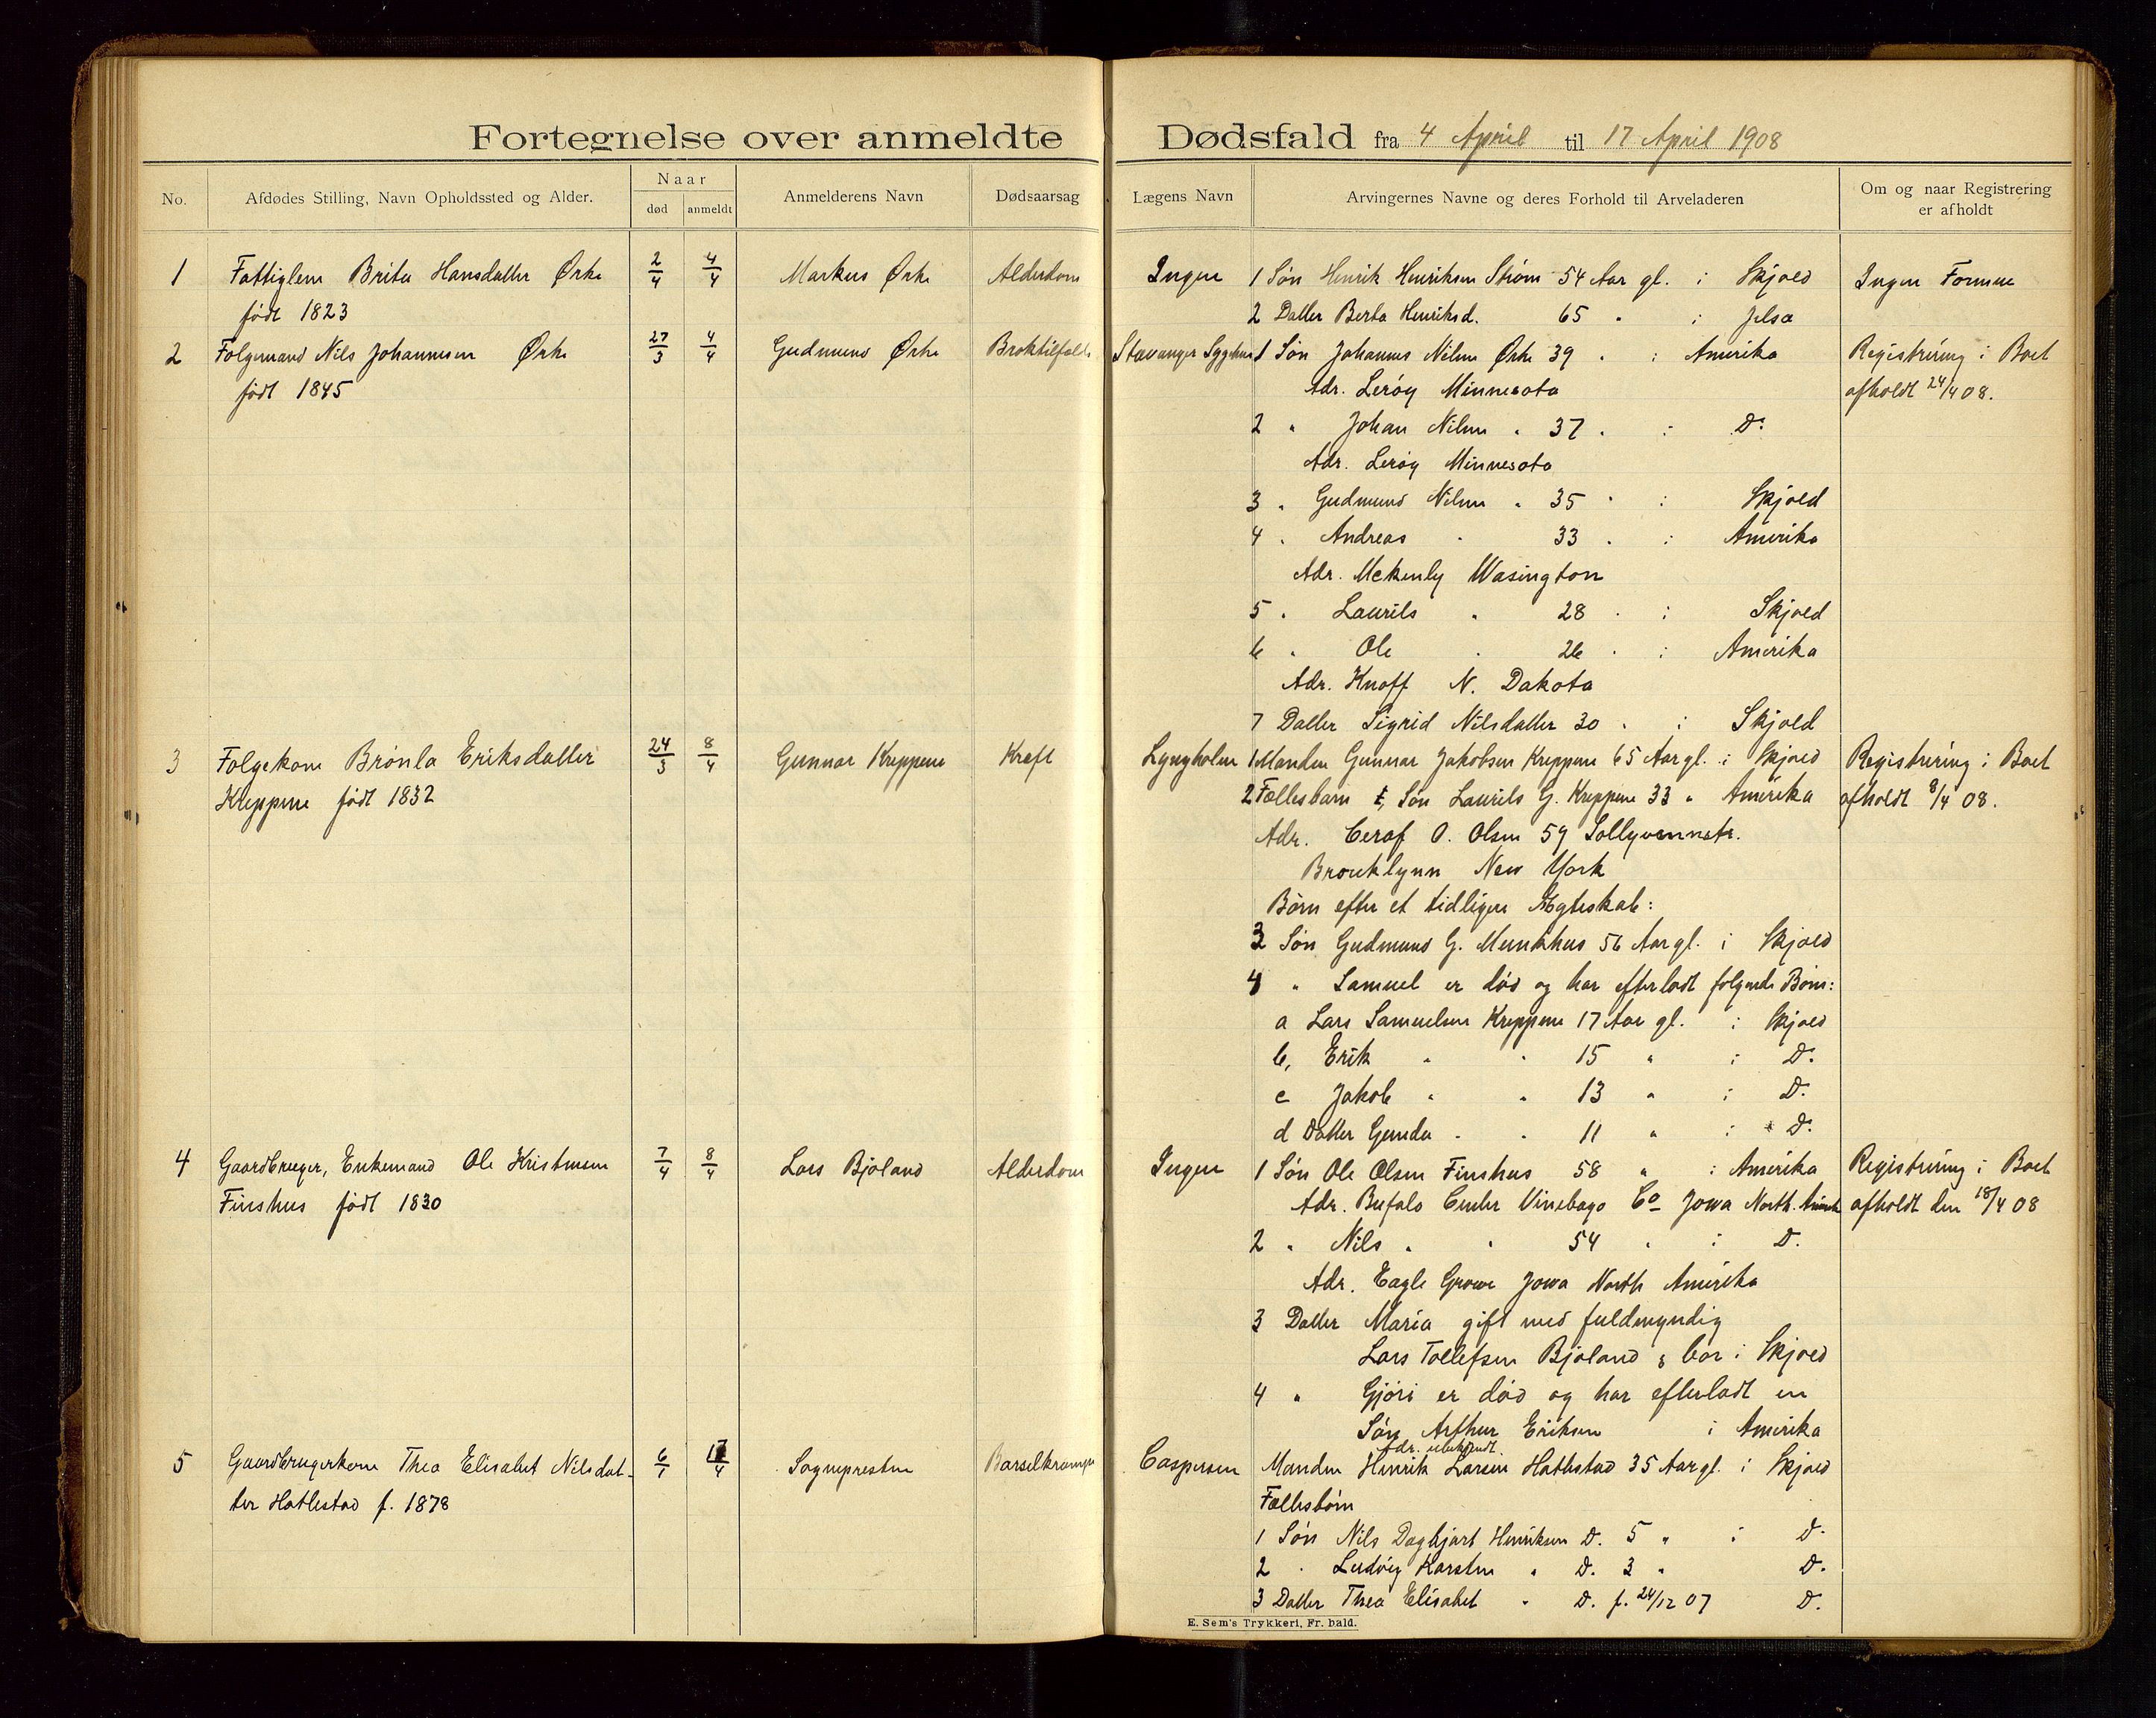 Fortegnelse over anmeldte Dødsfald fra 4 April til 17 April 1908
No. Afdødes Stilling, Navn Opholdssted og Alder. Naar død anmeldt Anmelderens Navn Dødsaarsag Lægens Navn Arvingernes Navne og deres Forhold til Arveladeren Om og naar Registrering er afholdt
1 Fattiglem Brita Hansdatter Ørke 2/4 4/4 Markus Ørke Alderdom Ingen 1 Søn Henrik Henriksen Strøm 54 Aar gl. i Skjold Ingen Formue
født 1823 2 Datter Berta Henriksd. 65 " i Jelsa
2 Følgemand Nils Johannesen Ørke 27/3 4/4 Gudmund Ørke Broktilfælde Stavanger Sygehus 1 Søn Johannes Nilsen Ørke 39 " i Amerika Registrering i Boet
født 1845 Adr. Leröy Minnesota afholdt 24/4 08.
2 " Johan Nilsen " 37 " i D.
Adr. Leröy Minnesota
3 " Gudmund Nilsen " 35 " i Skjold
4 " Andreas " 33 " i Amerika
Adr. Mckenly Wasington
5 " Laurits " 28 " i Skjold
6 " Ole " 26 " i Amerika
Adr. Knoff N. Dakota
7 Datter Sigrid Nilsdatter 30 " i Skjold
3 Følgekone Brønla Eriksdatter 24/3 8/4 Gunnar Kreppene Kræft Lyngholm 1 Manden Gunnar Jakobsen Kreppene 65 Aar gl. i Skjold Registrering i Boet
Kreppene født 1832 2 Fællesbarn Søn Laurits G. Kreppene 33 " Amerika afholdt 8/4 08.
Adr. Cerof O. Olsen 59 Sollyvennstr.
Broucklynn New York
Børn efter et tidligere Ægteskab:
3 Søn Gudmund G. Munkhus 56 Aar gl. i Skjold
4 " Samuel er død og har efterladt følgende Børn:
a Lars Samuelsen Kreppene 17 Aar gl. i Skjold
b, Erik " " 15 " i D.
c Jakob " " 13 " i D.
d Datter Gunda " " 11 " i D.
4 Gaardbruger, Enkemand Ole Kristensen 7/4 8/4 Lars Bjoland Alderdom Ingen 1 Søn Ole Olsen Finshus 58 " i Amerika Registrering i Boet
Finshus født 1830 Adr. Bufalo Center Vinebago Co Jowa North. Amerik afholdt den 18/4 08
2 " Nils " " 54 " i D.
Adr. Eagle Growe Jowa North Amerika
3 Datter Maria gift med fuldmyndig
Lars Tollefsen Bjoland & bor i Skjold
4 " Gjøri er død og har efterladt en
Søn Arthur Eriksen i Amerika
Adr. ubekjendt.
5 Gaardbrugerkone Thea Elisabet Nilsdat- 6/1 17/4 Sognepresten Barselkrampe Caspersen Manden Henrik Larsen Hatlestad 35 Aar gl. i Skjold
ter Hatlestad f. 1878 Fællesbørn
1 Søn Nils Dagbjart Henriksen D. 5 " i D.
2 " Ludvig Karsten " D. 3 " D.
3 Datter Thea Elisabet " D. f. 24/12 07 D.
E. Sem's Trykkeri, Fr. hald.